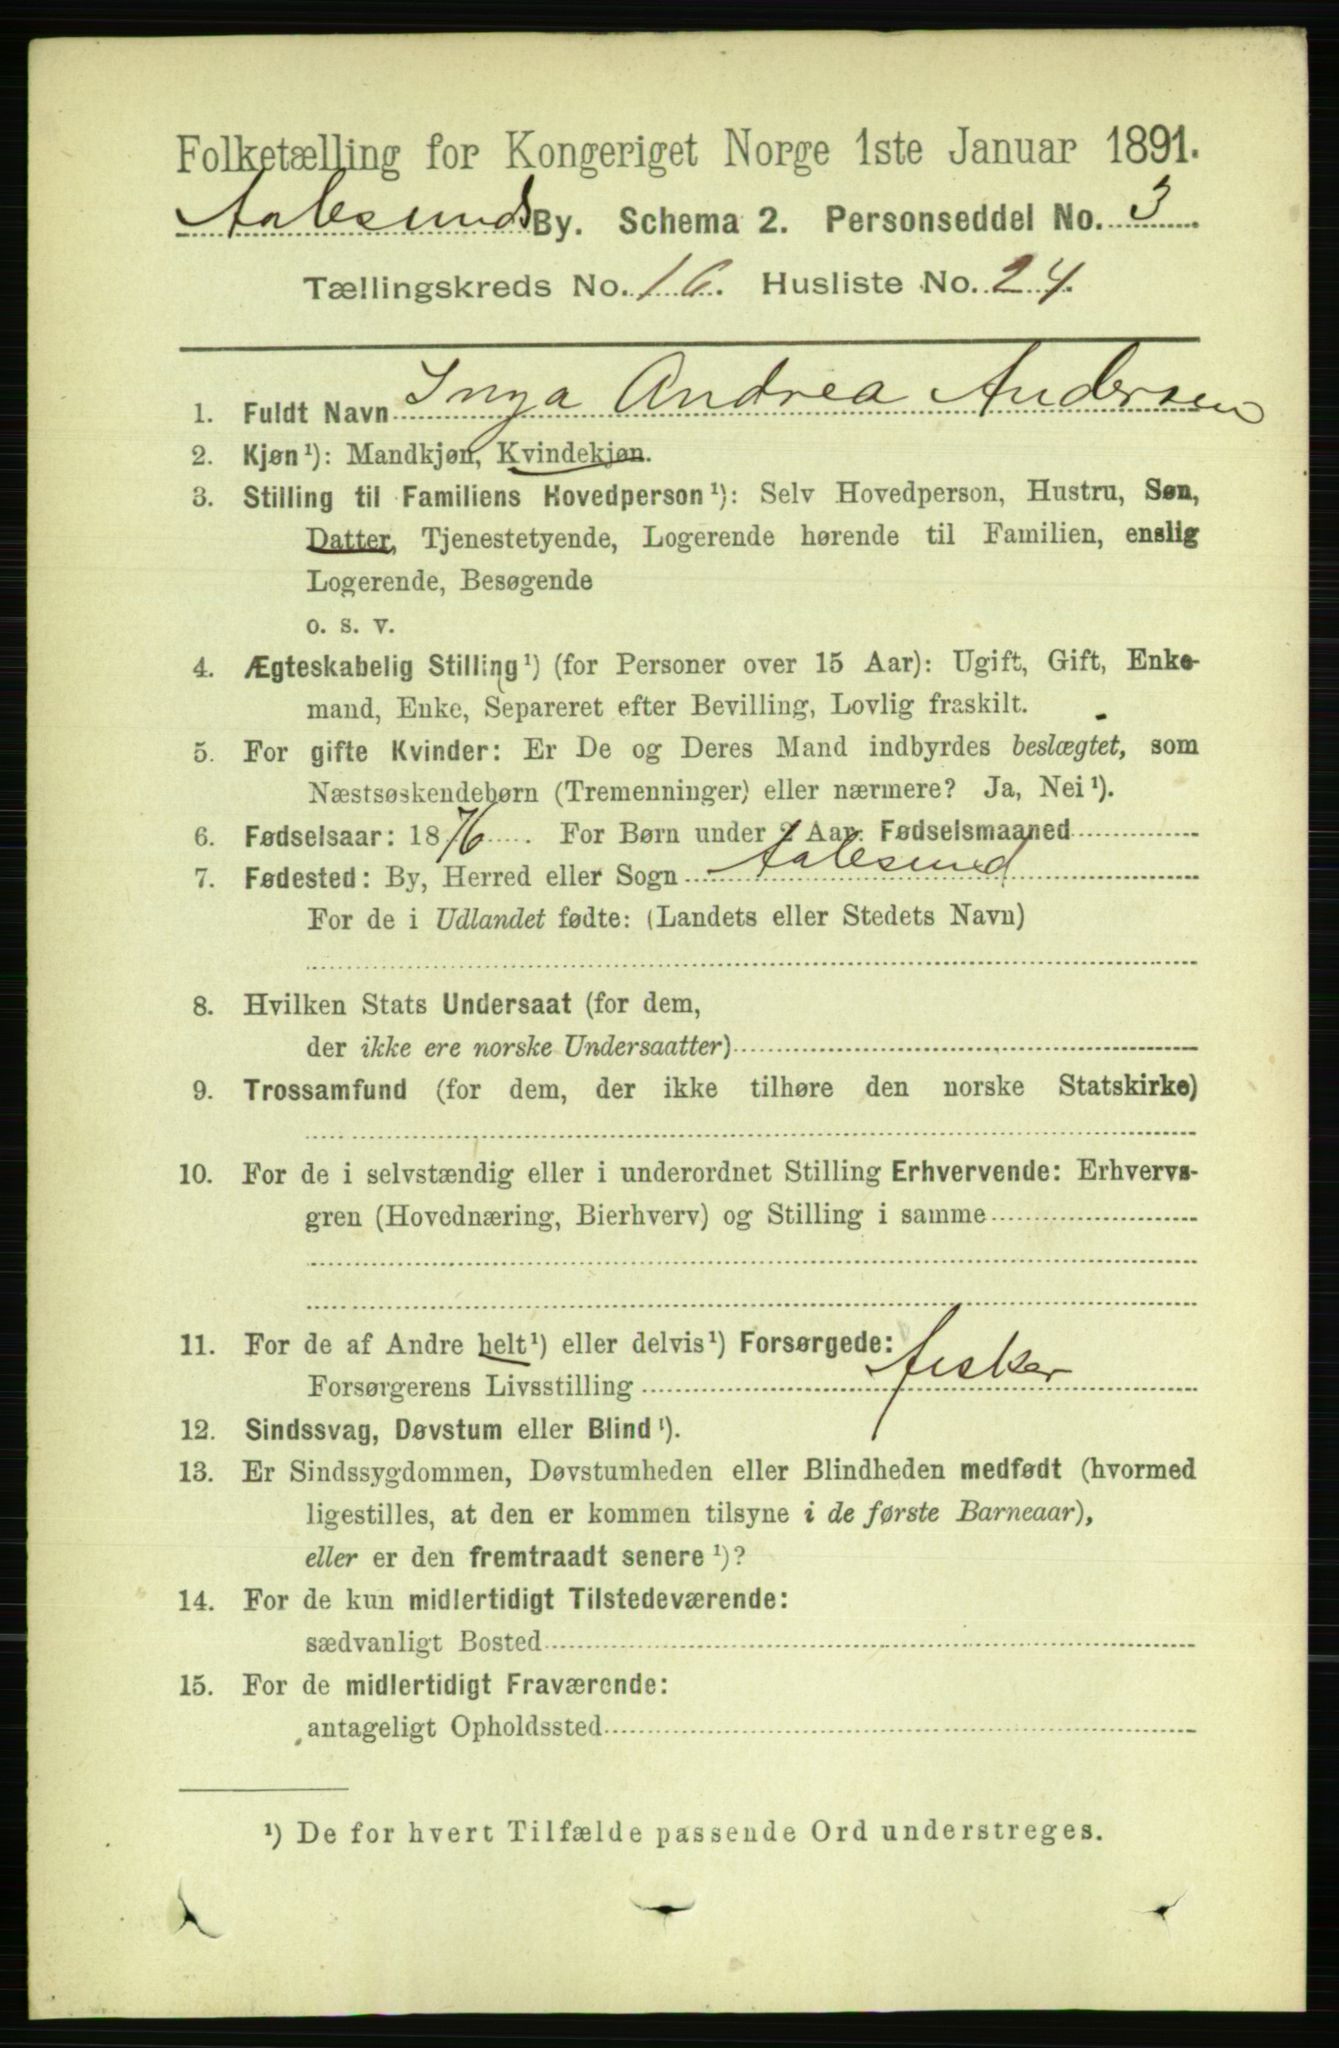 Folketælling for Kongeriget Norge 1ste Januar 1891.
Aalesunds By. Schema 2. Personseddel No. 3
Tællingskreds No. 16. Husliste No. 24.
1. Fuldt Navn Inga Andrea Andersen
2. Kjøn¹): Mandkjøn, Kvindekjøn.
3. Stilling til Familiens Hovedperson¹): Selv Hovedperson, Hustru, Søn,
Datter, Tjenestetyende, Logerende hørende til Familien, enslig
Logerende, Besøgende
o. s. v.
4. Ægteskabelig Stilling¹) (for Personer over 15 Aar): Ugift, Gift, Enke-
mand, Enke, Separeret efter Bevilling, Lovlig fraskilt.
5. For gifte Kvinder: Er De og Deres Mand indbyrdes beslægtet, som
Næstsøskendebørn (Tremenninger) eller nærmere? Ja, Nei¹).
6. Fødselsaar: 1876. For Børn under 2 Aar. Fødselsmaaned
7. Fødested: By, Herred eller Sogn Aalesund
For de i Udlandet fødte: (Landets eller Stedets Navn)
8. Hvilken Stats Undersaat (for dem,
der ikke ere norske Undersaatter)
9. Trossamfund (for dem, der ikke tilhøre den norske Statskirke)
10. For de i selvstændig eller i underordnet Stilling Erhvervende: Erhvervs-
gren (Hovednæring, Bierhverv) og Stilling i samme
11. For de af Andre helt¹) eller delvis¹) Forsørgede:
Forsørgerens Livsstilling Fisker
12. Sindssvag, Døvstum eller Blind¹).
13. Er Sindssygdommen, Døvstumheden eller Blindheden medfødt (hvormed
ligestilles, at den er kommen tilsyne i de første Barneaar),
eller er den fremtraadt senere¹)?
14. For de kun midlertidigt Tilstedeværende:
sædvanligt Bosted
15. For de midlertidigt Fraværende:
antageligt Opholdssted
¹) De for hvert Tilfælde passende Ord understreges.